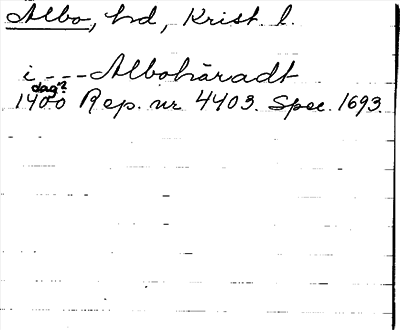 Albo, hd, Krist. l.
i --- Albohäradt
dag?
1400 Rep. nr 4403. Spec. 1693.